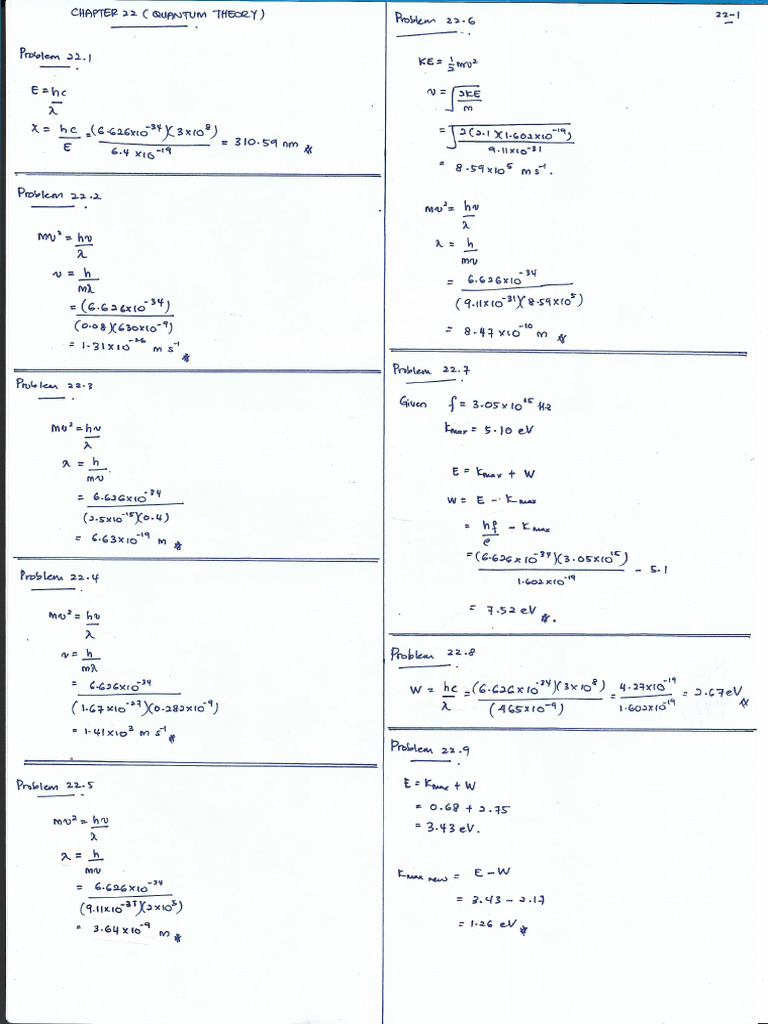 CHAPTER 22 (QUANTUM THEORY)
Problem 22.1
E = hc/λ
λ = hc/E = (6.626×10⁻³⁴)(3×10⁸)/6.4×10⁻¹⁹ = 310.59 nm
Problem 22.2
mv² = hv/λ
v = h/mλ
= (6.626×10⁻³⁴)/(0.08)(630×10⁻⁹)
= 1.31×10⁻²⁶ m s⁻¹
Problem 22.3
mv² = hv/λ
λ = h/mv.
= 6.626×10⁻³⁴/(2.5×10⁻¹⁵)(0.4)
= 6.63×10⁻¹⁹ m
Problem 22.4
mv² = hv/λ
v = h/mλ
= 6.626×10⁻³⁴/(1.67×10⁻²⁷)(0.282×10⁻⁹)
= 1.41×10³ m s⁻¹
Problem 22.5
mv² = hv/λ
λ = h/mv
= 6.626×10⁻³⁴/(9.11×10⁻³¹)(2×10⁵)
= 3.64×10⁻⁹ m
22-1
Problem 22.6
KE = ½mv²
v = √(2KE/m)
= √(2(2.1)(1.602×10⁻¹⁹)/9.11×10⁻³¹)
= 8.59×10⁵ m s⁻¹.
mv² = hv/λ
λ = h/mv
= 6.626×10⁻³⁴/(9.11×10⁻³¹)(8.59×10⁵)
= 8.47×10⁻¹⁰ m
Problem 22.7
Given f = 3.05×10¹⁵ Hz
Kmax = 5.10 eV
E = Kmax + W
W = E - Kmax
= hf/e - Kmax
= (6.626×10⁻³⁴)(3.05×10¹⁵)/1.602×10⁻¹⁹ - 5.1
= 7.52 eV.
Problem 22.8
W = hc/λ = (6.626×10⁻³⁴)(3×10⁸)/(465×10⁻⁹) = 4.27×10⁻¹⁹/1.602×10⁻¹⁹ = 2.67eV
Problem 22.9
E = Kmax + W
= 0.68 + 2.75
= 3.43 eV.
Kmax new = E - W
= 3.43 - 2.17
= 1.26 eV